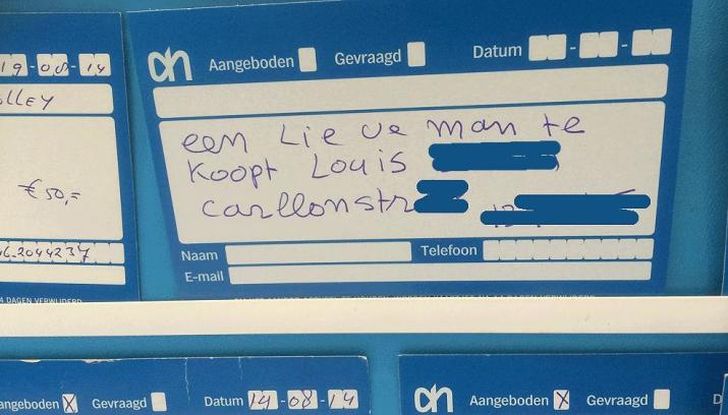 19-08-14
LLEY
€50,=
6-2044237
4 DAGEN VERWIJDERD
ah Aangeboden Gevraagd Datum - -
een Lieve man te
koopt Louis
carllonstr
Naam Telefoon
E-mail
angeboden X Gevraagd Datum 14-08-14
ah Aangeboden X Gevraagd D